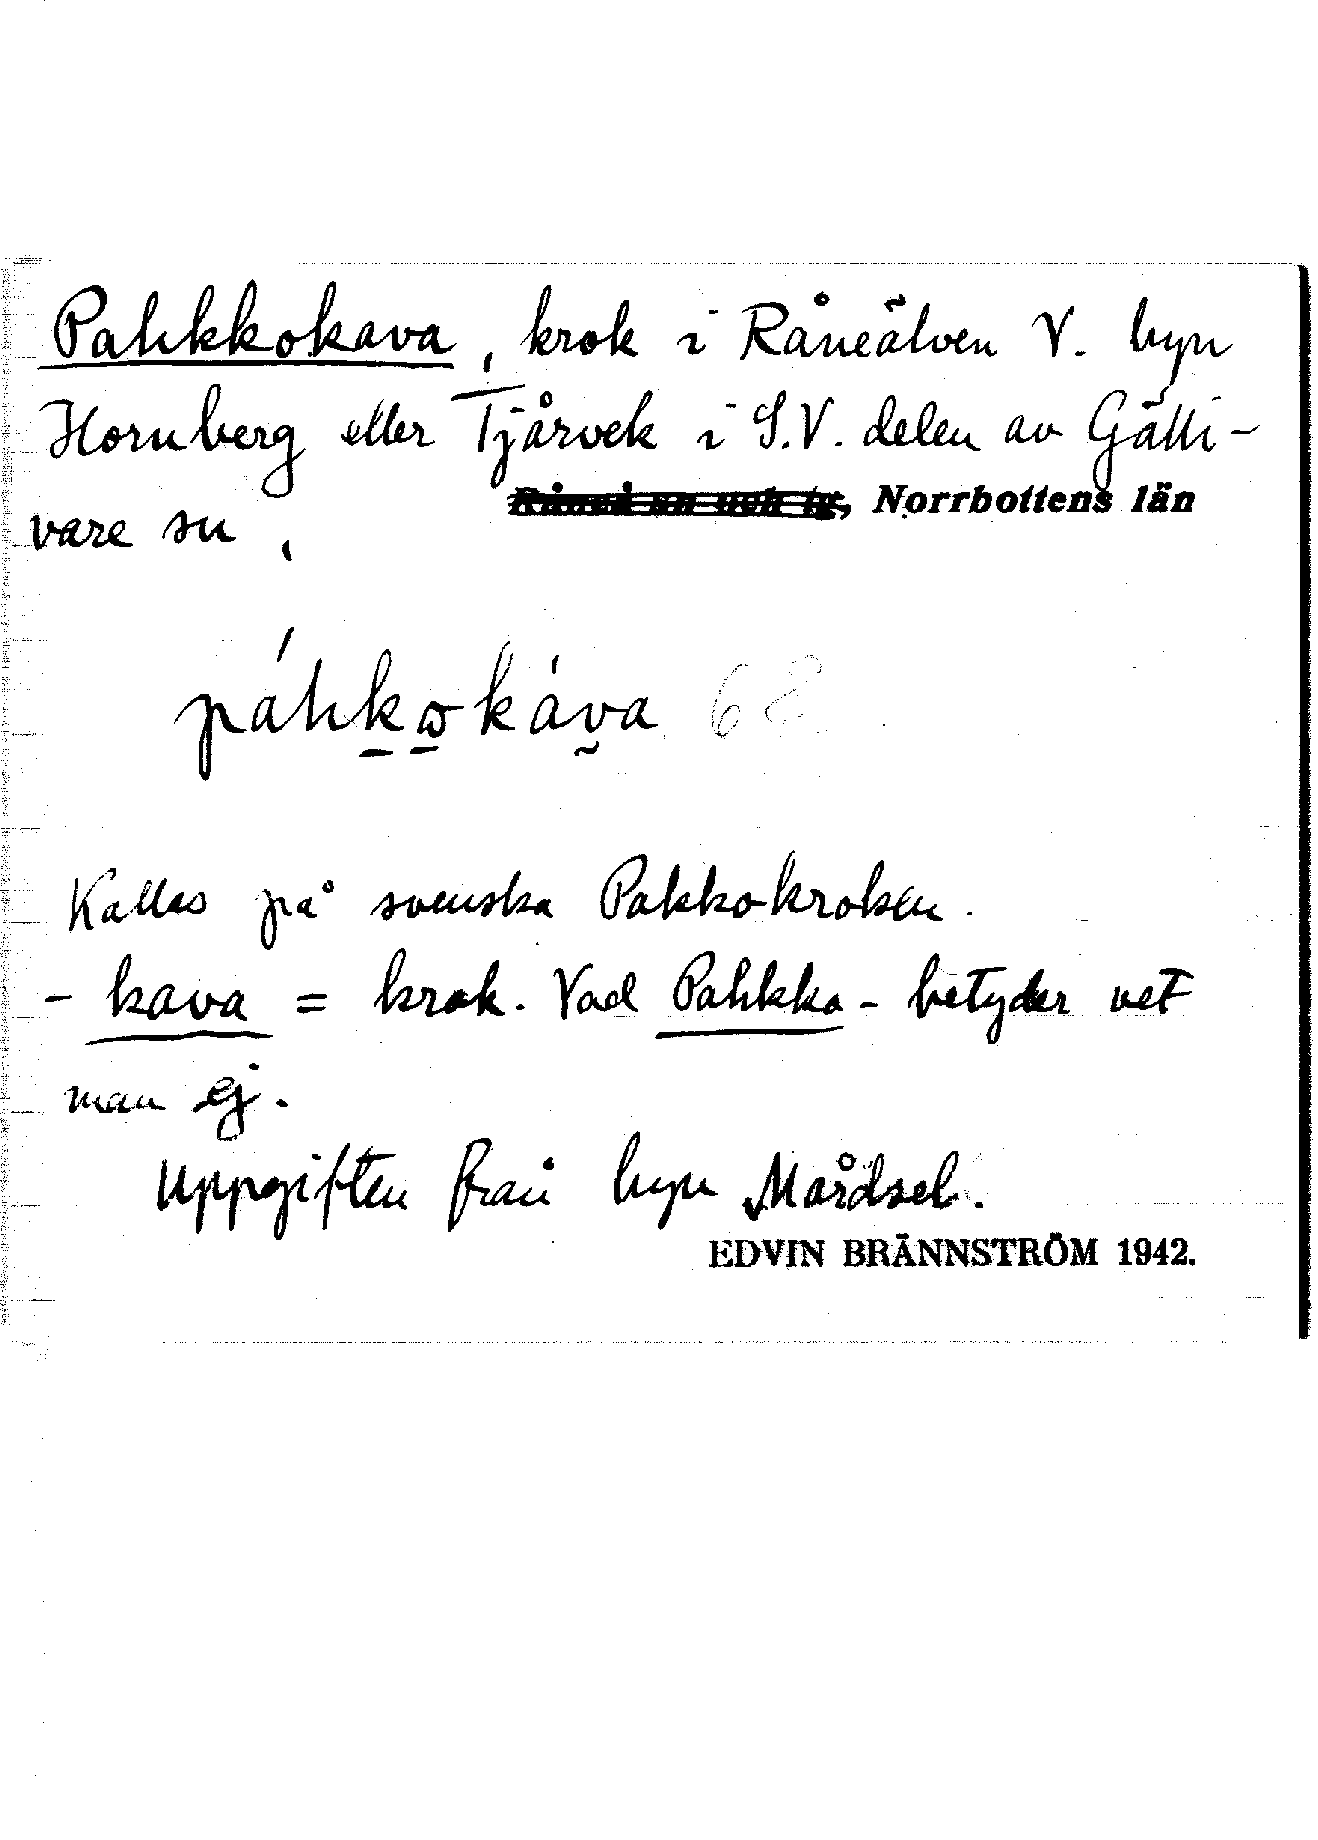 Pahkkokava, krok i Råneälven V. byn
Hornberg eller Tjårvek i S.V. delen av Gälli-
Råneå sn och tg, Norrbottens län
vare sn.
páhkωkáva 62
Kallas på svenska Pakkokroken.
- kava = krok. Vad Pahkko- betyder vet
man ej.
Uppgiften från byn Mårdsel.
EDVIN BRÄNNSTRÖM 1942.